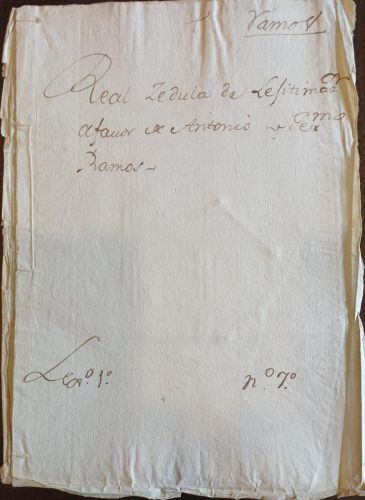 Ramos
Real Zedula de Lesitimaon
afauor de Antonio y Germo
Ramos
Legº. 1º. nº. 7º.